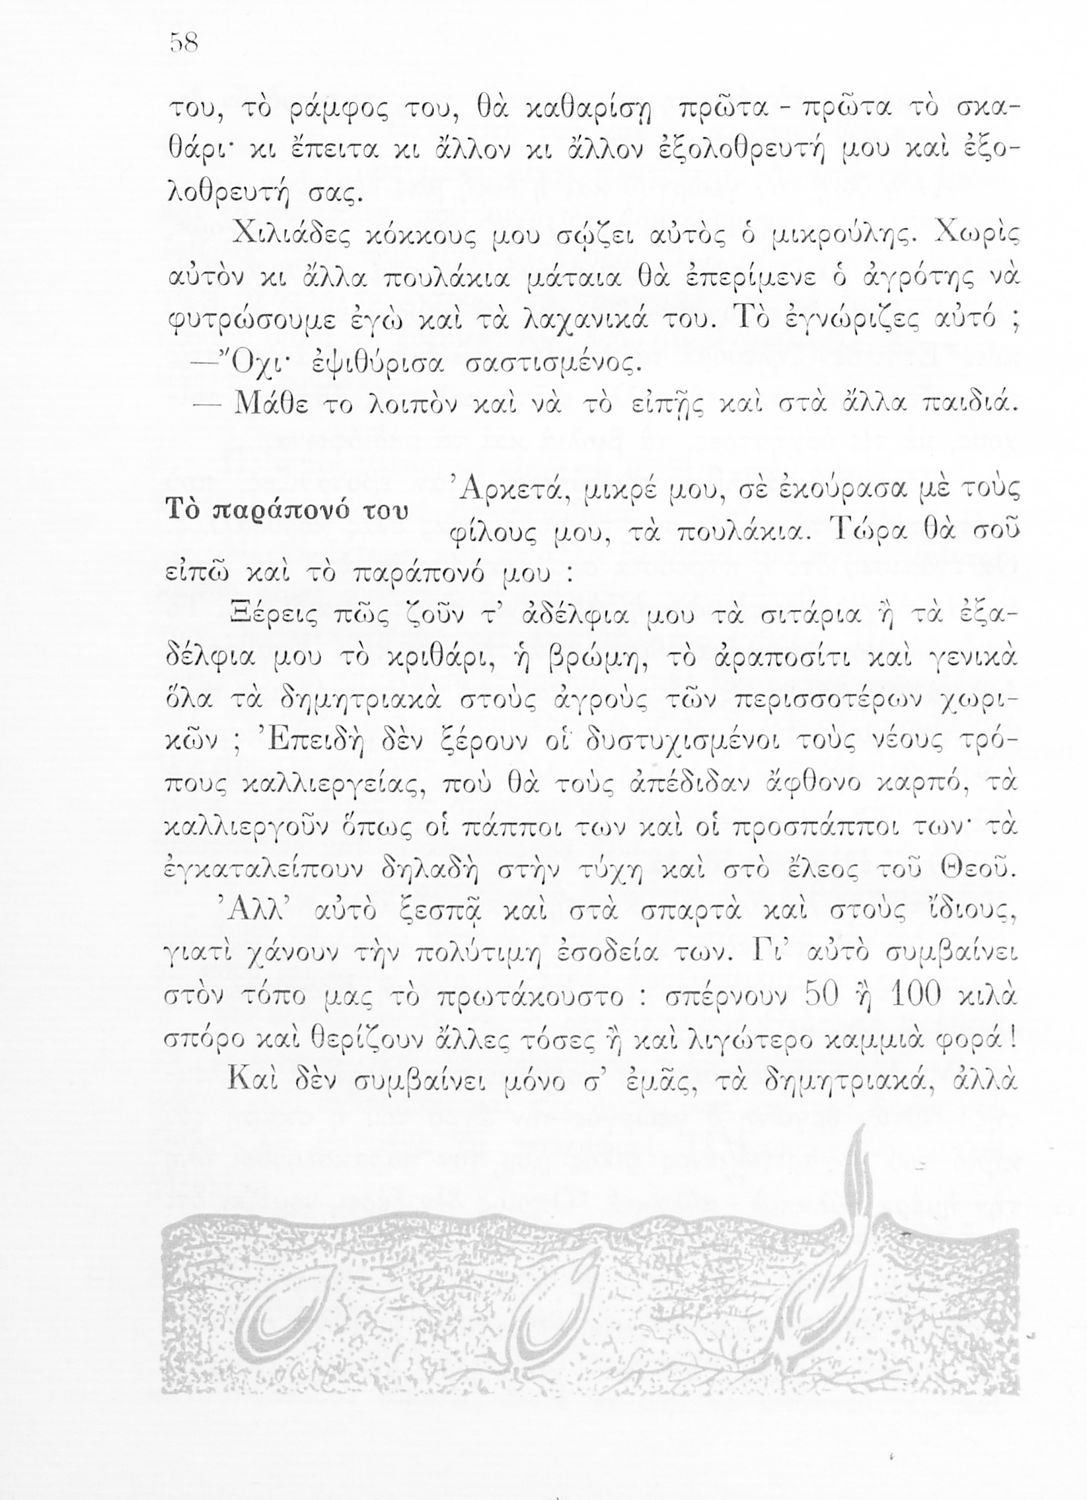 58
του, τὸ ράμφος του, θὰ καθαρίσῃ πρῶτα - πρῶτα τὸ σκα-
θάρι· κι ἔπειτα κι ἄλλον κι ἄλλον ἐξολοθρευτή μου καὶ ἐξο-
λοθρευτή σας.
Χιλιάδες κόκκους μου σῴζει αὐτὸς ὁ μικρούλης. Χωρὶς
αὐτὸν κι ἄλλα πουλάκια μάταια θὰ ἐπερίμενε ὁ ἀγρότης νὰ
φυτρώσουμε ἐγὼ καὶ τὰ λαχανικά του. Τὸ ἐγνώριζες αὐτό ;
—Ὄχι· ἐψιθύρισα σαστισμένος.
— Μάθε το λοιπὸν καὶ νὰ τὸ εἰπῇς καὶ στὰ ἄλλα παιδιά.
Τὸ παράπονό του
Ἀρκετά, μικρέ μου, σὲ ἐκούρασα μὲ τοὺς
φίλους μου, τὰ πουλάκια. Τώρα θὰ σοῦ
εἰπῶ καὶ τὸ παράπονό μου :
Ξέρεις πῶς ζοῦν τ’ ἀδέλφια μου τὰ σιτάρια ἢ τὰ ἐξα-
δέλφια μου τὸ κριθάρι, ἡ βρώμη, τὸ ἀραποσίτι καὶ γενικὰ
ὅλα τὰ δημητριακὰ στοὺς ἀγροὺς τῶν περισσοτέρων χωρι-
κῶν ; Ἐπειδὴ δὲν ξέρουν οἱ δυστυχισμένοι τοὺς νέους τρό-
πους καλλιεργείας, ποὺ θὰ τοὺς ἀπέδιδαν ἄφθονο καρπό, τὰ
καλλιεργοῦν ὅπως οἱ πάπποι των καὶ οἱ προσπάπποι των· τὰ
ἐγκαταλείπουν δηλαδὴ στὴν τύχη καὶ στὸ ἔλεος τοῦ Θεοῦ.
Ἀλλ’ αὐτὸ ξεσπᾷ καὶ στὰ σπαρτὰ καὶ στοὺς ἴδιους,
γιατὶ χάνουν τὴν πολύτιμη ἐσοδεία των. Γι’ αὐτὸ συμβαίνει
στὸν τόπο μας τὸ πρωτάκουστο : σπέρνουν 50 ἢ 100 κιλὰ
σπόρο καὶ θερίζουν ἄλλες τόσες ἢ καὶ λιγώτερο καμμιὰ φορά !
Καὶ δὲν συμβαίνει μόνο σ’ ἐμᾶς, τὰ δημητριακά, ἀλλὰ